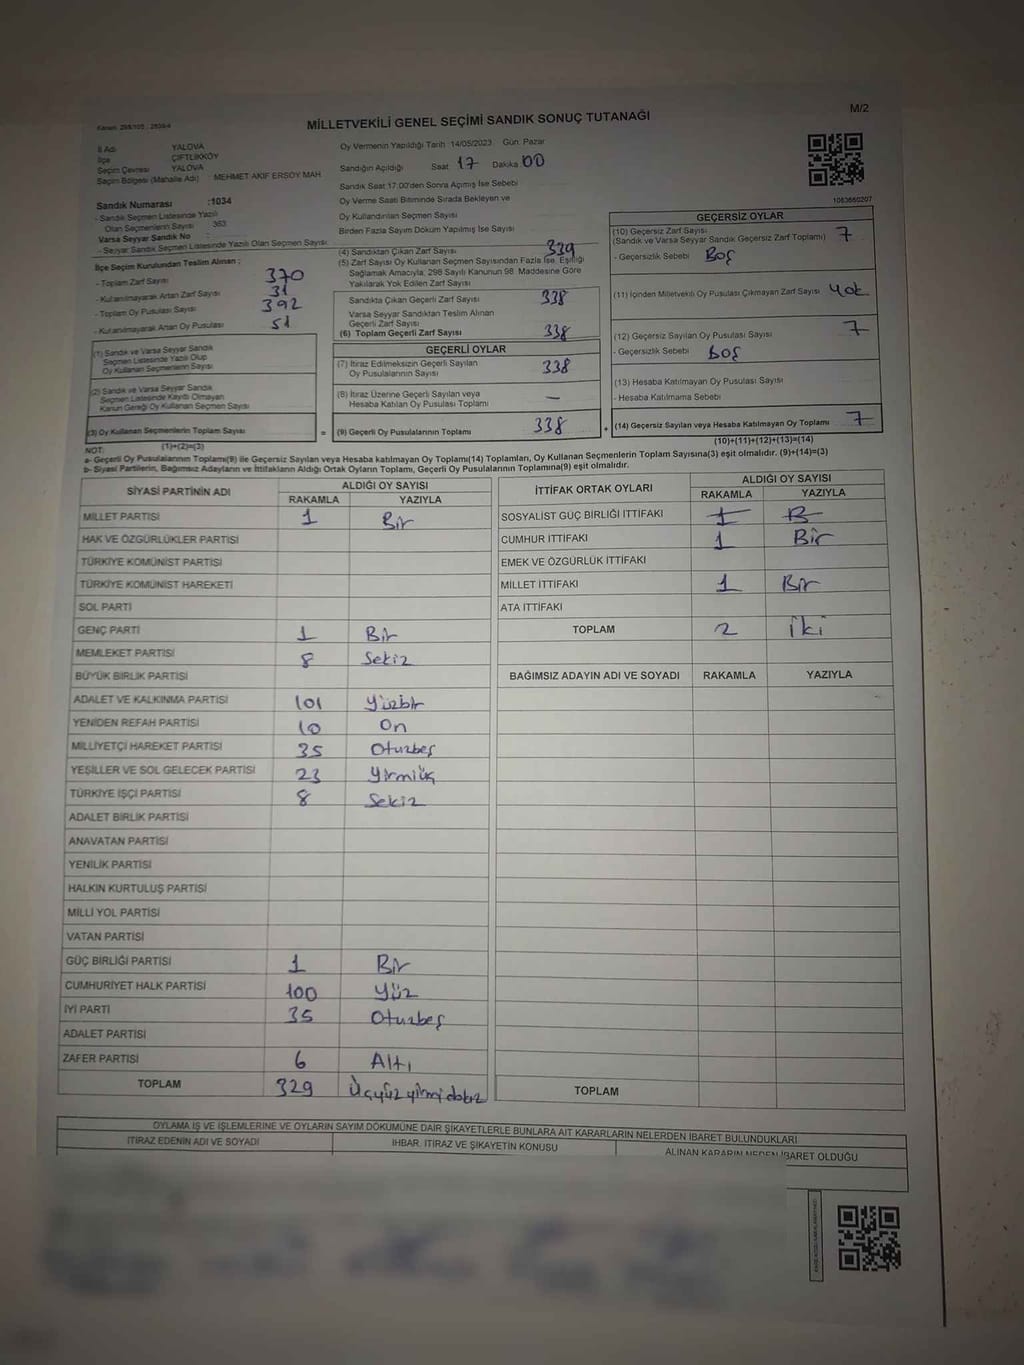 Kanun: 298/105 ; 2839/4
MİLLETVEKİLİ GENEL SEÇİMİ SANDIK SONUÇ TUTANAĞI
M/2
İl Adı YALOVA
İlçe ÇİFTLİKKÖY
Seçim Çevresi YALOVA
Seçim Bölgesi (Mahalle Adı) MEHMET AKİF ERSOY MAH
Oy Vermenin Yapıldığı Tarih 14/05/2023 Gün. Pazar
Sandığın Açıldığı Saat 17 Dakika 00
Sandık Saat 17:00'den Sonra Açımış İse Sebebi
Sandık Numarası :1034
- Sandık Seçmen Listesinde Yazılı
Olan Seçmenlerin Sayısı 363
Varsa Seyyar Sandık No :
- Seyyar Sandık Seçmen Listesinde Yazılı Olan Seçmen Sayısı
Oy Verme Saati Bitiminde Sırada Bekleyen ve
Oy Kullandırılan Seçmen Sayısı
Birden Fazla Sayım Döküm Yapılmış İse Sayısı
1083660207
İlçe Seçim Kurulundan Teslim Alınan :
- Toplam Zarf Sayısı 370
- Kullanılmayarak Artan Zarf Sayısı 31
- Toplam Oy Pusulası Sayısı 392
- Kullanılmayarak Artan Oy Pusulası 51
(1) Sandık ve Varsa Seyyar Sandık
Seçmen Listesinde Yazılı Olup
Oy Kullanan Seçmenlerin Sayısı
(2) Sandık ve Varsa Seyyar Sandık
Seçmen Listesinde Kaydı Olmayan
Kanun Gereği Oy Kullanan Seçmen Sayısı
(3) Oy Kullanan Seçmenlerin Toplam Sayısı
(1)+(2)=(3)
(4) Sandıktan Çıkan Zarf Sayısı 339
(5) Zarf Sayısı Oy Kullanan Seçmen Sayısından Fazla İse, Eşitliği
Sağlamak Amacıyla, 298 Sayılı Kanunun 98. Maddesine Göre
Yakılarak Yok Edilen Zarf Sayısı
Sandıkta Çıkan Geçerli Zarf Sayısı 338
Varsa Seyyar Sandıktan Teslim Alınan
Geçerli Zarf Sayısı
(6) Toplam Geçerli Zarf Sayısı 338
GEÇERLİ OYLAR
(7) İtiraz Edilmeksizin Geçerli Sayılan
Oy Pusulalarının Sayısı 338
(8) İtiraz Üzerine Geçerli Sayılan veya
Hesaba Katılan Oy Pusulası Toplamı —
= (9) Geçerli Oy Pusulalarının Toplamı 338 +
GEÇERSİZ OYLAR
(10) Geçersiz Zarf Sayısı
(Sandık ve Varsa Seyyar Sandık Geçersiz Zarf Toplamı) 7
- Geçersizlik Sebebi Boş
(11) İçinden Milletvekili Oy Pusulası Çıkmayan Zarf Sayısı Yok
(12) Geçersiz Sayılan Oy Pusulası Sayısı 7
- Geçersizlik Sebebi Boş
(13) Hesaba Katılmayan Oy Pusulası Sayısı
- Hesaba Katılmama Sebebi
(14) Geçersiz Sayılan veya Hesaba Katılmayan Oy Toplamı 7
(10)+(11)+(12)+(13)=(14)
NOT:
a- Geçerli Oy Pusulalarının Toplamı(9) ile Geçersiz Sayılan veya Hesaba Katılmayan Oy Toplamı(14) Toplamları, Oy Kullanan Seçmenlerin Toplam Sayısına(3) eşit olmalıdır. (9)+(14)=(3)
b- Siyasi Partilerin, Bağımsız Adayların ve İttifakların Aldığı Ortak Oyların Toplamı, Geçerli Oy Pusulalarının Toplamına(9) eşit olmalıdır.
SİYASİ PARTİNİN ADI ALDIĞI OY SAYISI
RAKAMLA YAZIYLA
MİLLET PARTİSİ 1 Bir
HAK VE ÖZGÜRLÜKLER PARTİSİ
TÜRKİYE KOMÜNİST PARTİSİ
TÜRKİYE KOMÜNİST HAREKETİ
SOL PARTİ
GENÇ PARTİ 1 Bir
MEMLEKET PARTİSİ 8 Sekiz
BÜYÜK BİRLİK PARTİSİ
ADALET VE KALKINMA PARTİSİ 101 Yüzbir
YENİDEN REFAH PARTİSİ 10 On
MİLLİYETÇİ HAREKET PARTİSİ 35 Otuzbeş
YEŞİLLER VE SOL GELECEK PARTİSİ 23 Yirmiüç
TÜRKİYE İŞÇİ PARTİSİ 8 Sekiz
ADALET BİRLİK PARTİSİ
ANAVATAN PARTİSİ
YENİLİK PARTİSİ
HALKIN KURTULUŞ PARTİSİ
MİLLİ YOL PARTİSİ
VATAN PARTİSİ
GÜÇ BİRLİĞİ PARTİSİ 1 Bir
CUMHURİYET HALK PARTİSİ 100 Yüz
İYİ PARTİ 35 Otuzbeş
ADALET PARTİSİ
ZAFER PARTİSİ 6 Altı
TOPLAM 329 Üçyüz yirmi dokuz
İTTİFAK ORTAK OYLARI ALDIĞI OY SAYISI
RAKAMLA YAZIYLA
SOSYALİST GÜÇ BİRLİĞİ İTTİFAKI 1 B
CUMHUR İTTİFAKI 1 Bir
EMEK VE ÖZGÜRLÜK İTTİFAKI
MİLLET İTTİFAKI 1 Bir
ATA İTTİFAKI
TOPLAM 2 iki
BAĞIMSIZ ADAYIN ADI VE SOYADI RAKAMLA YAZIYLA
TOPLAM
OYLAMA İŞ VE İŞLEMLERİNE VE OYLARIN SAYIM DÖKÜMÜNE DAİR ŞİKAYETLERLE BUNLARA AİT KARARLARIN NELERDEN İBARET BULUNDUKLARI
İTİRAZ EDENİN ADI VE SOYADI İHBAR, İTİRAZ VE ŞİKAYETİN KONUSU ALINAN KARARIN NEDEN İBARET OLDUĞU